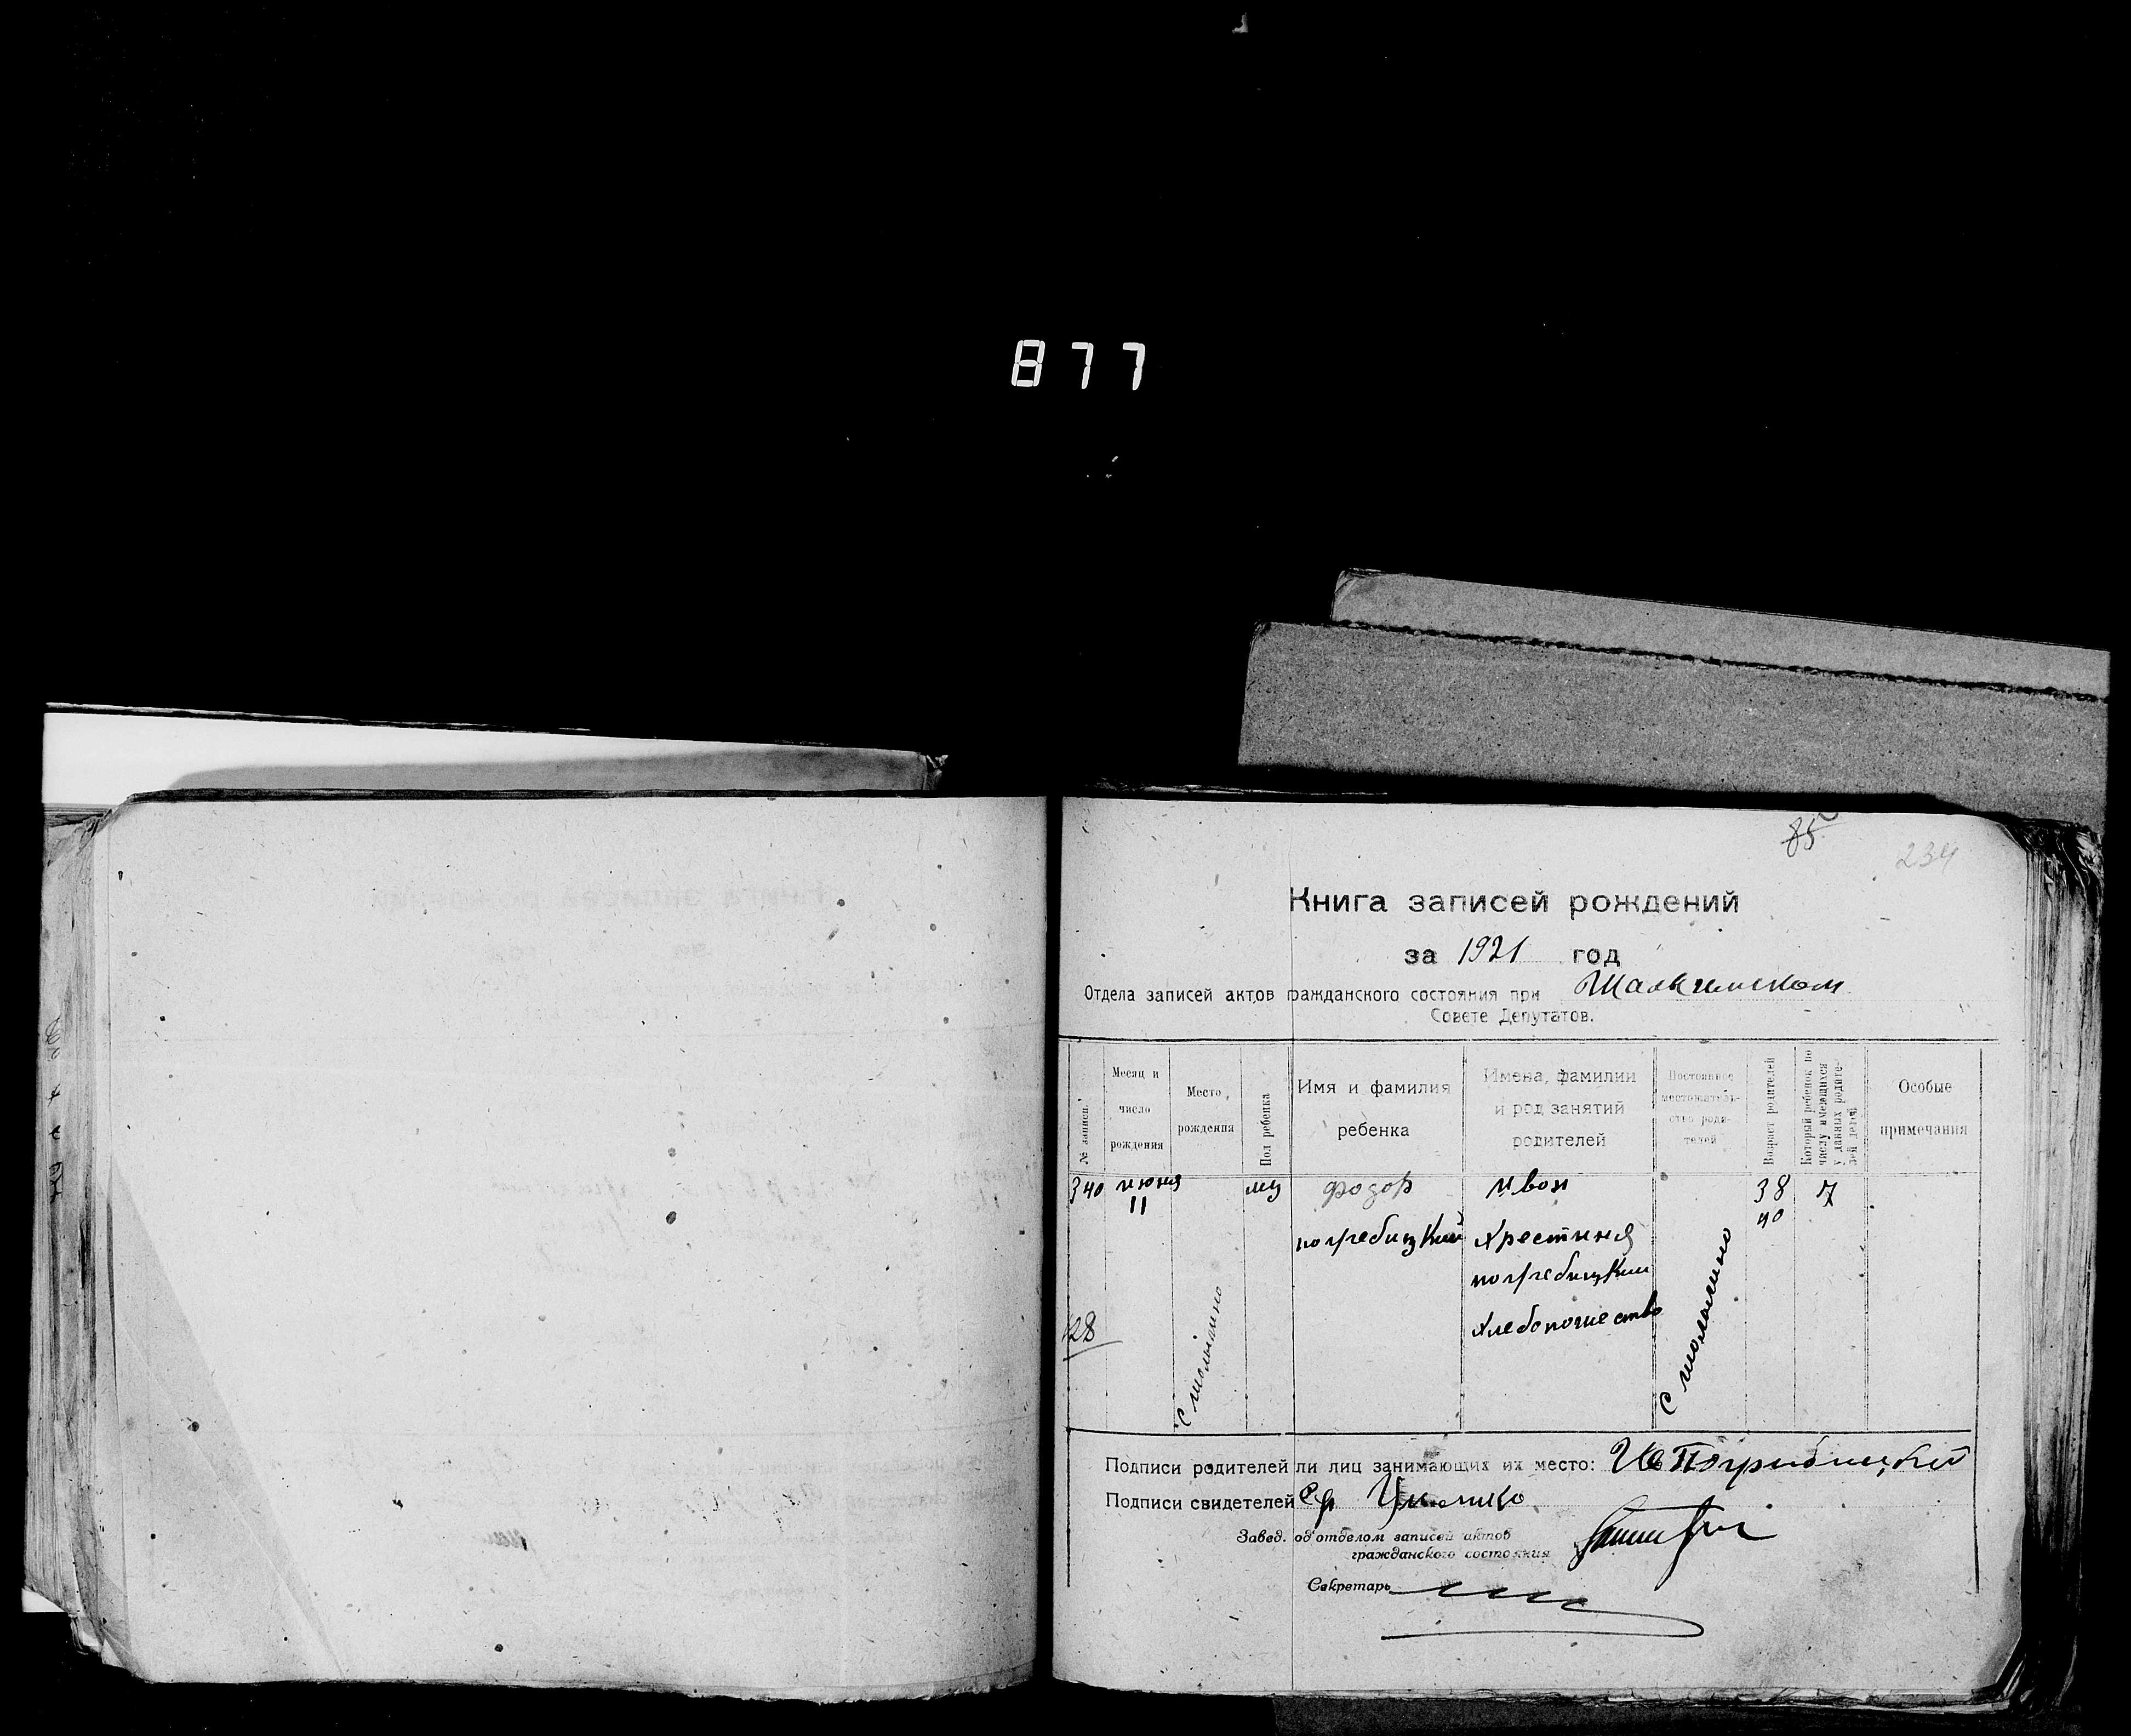 877
85
234
Книга записей рождений
за 1921 год
Отдела записей актов гражданского состояния при
Совете Депутатов.
№ записи.
Месяц и число рождения
Место рождения
Пол ребенка
Имя и фамилия ребенка
Имена, фамилии и род занятий родителей
Постоянное местожитель-ство роди-телей
Возраст родителей
Который ребенок по числу имеющихся у данных родите-лей детей
Особые примечания
340
июня
11
муз
фодор
погребицкий
ивон
Хрестиня
погребицкии
Хлебопошество
38
40
7
128
Подписи родителей или лиц занимающих их место: Ив Погрибицкий
Подписи свидетелей
Завед. под'отделом записей актов
гражданского состояния
Секретарь